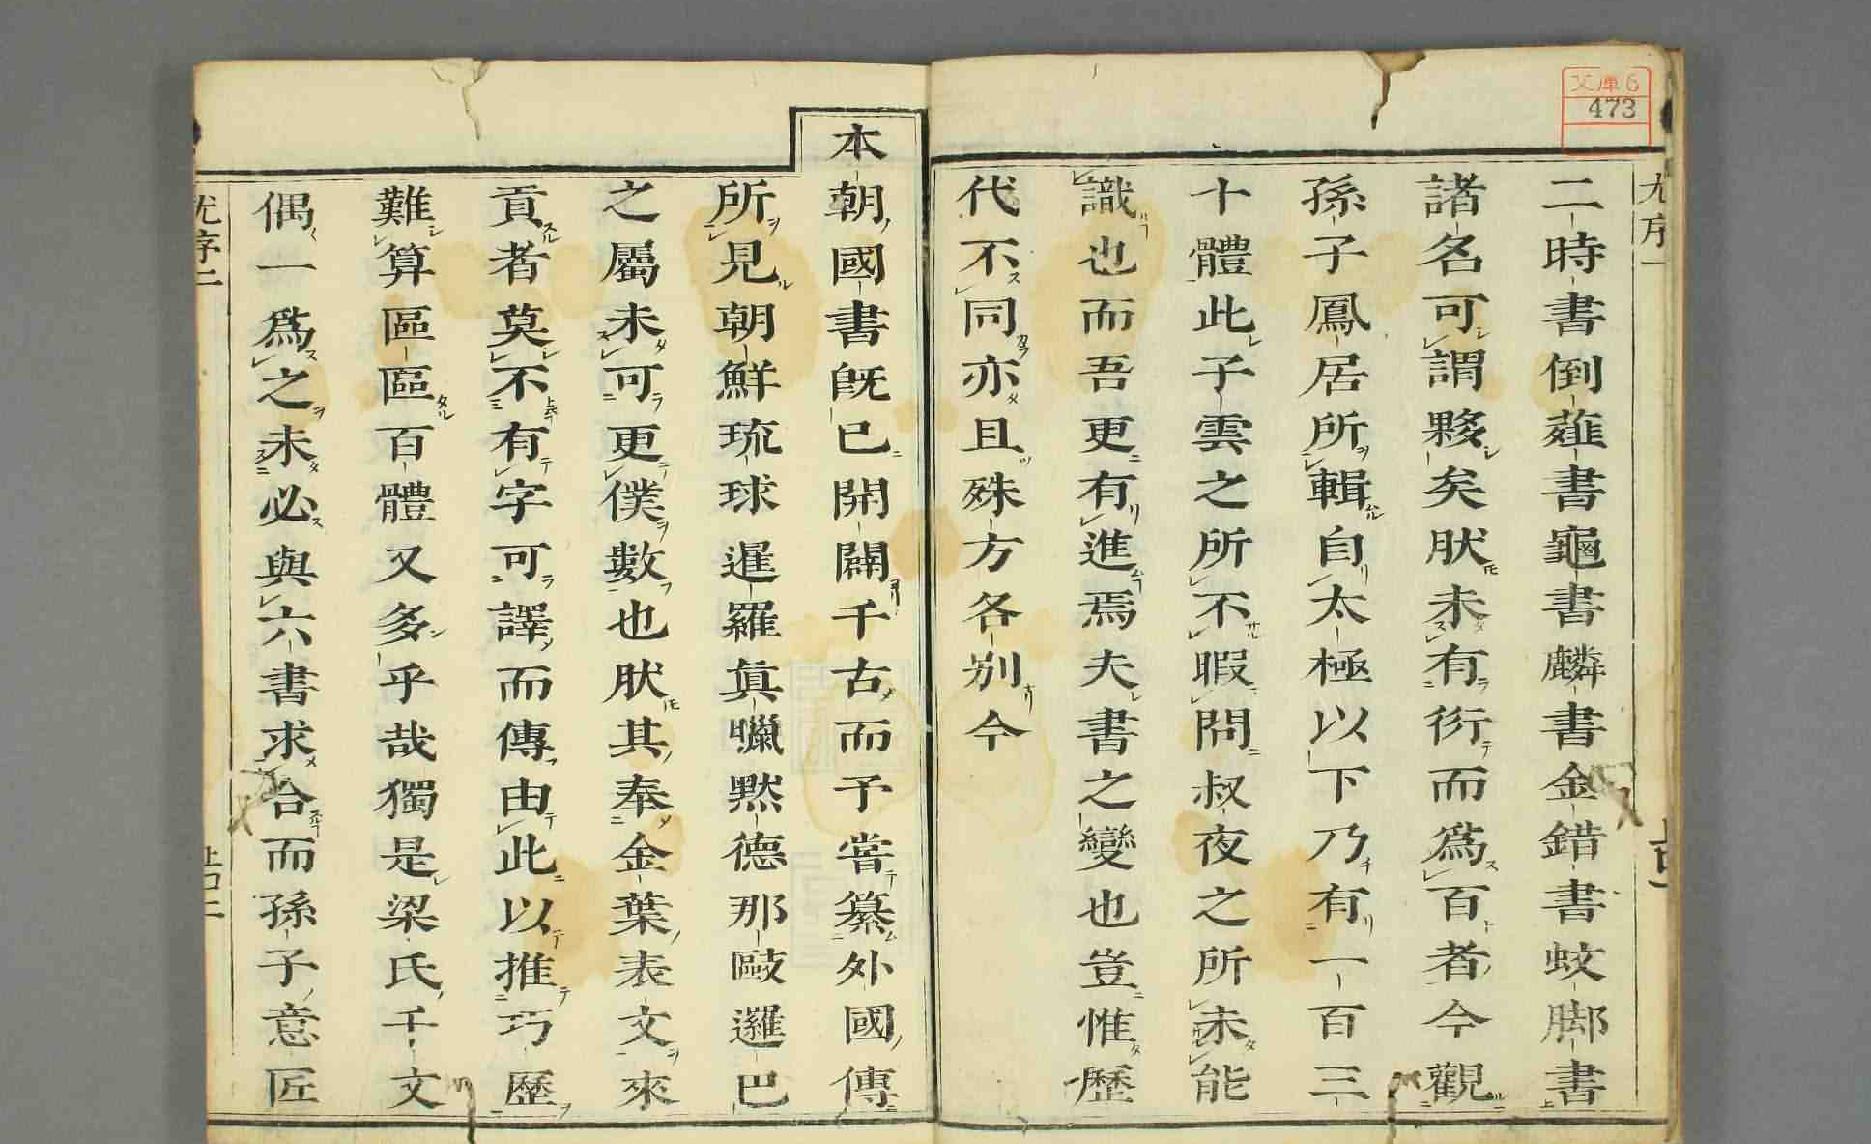 文庫6
473
尤序一
二時書倒薤書龜書麟書金錯書蚊脚書
諸名可謂夥矣肰未有衍而爲百者今觀
孫子鳳居所輯自太極以下乃有一百三
十體此子雲之所不暇問叔夜之所未能
識也而吾更有進焉夫書之變也豈惟歷
代不同亦且殊方各别今
本朝國書旣已開闢千古而予嘗纂外國傳
所見朝鮮琉球暹羅眞臘黙德那歐邏巴
之屬未可更僕數也肰其奉金葉表文來
貢者莫不有字可譯而傳由此以推巧歷
難算區區百體又多乎哉獨是梁氏千文
偶一爲之未必與六書求合而孫子意匠
尤序二